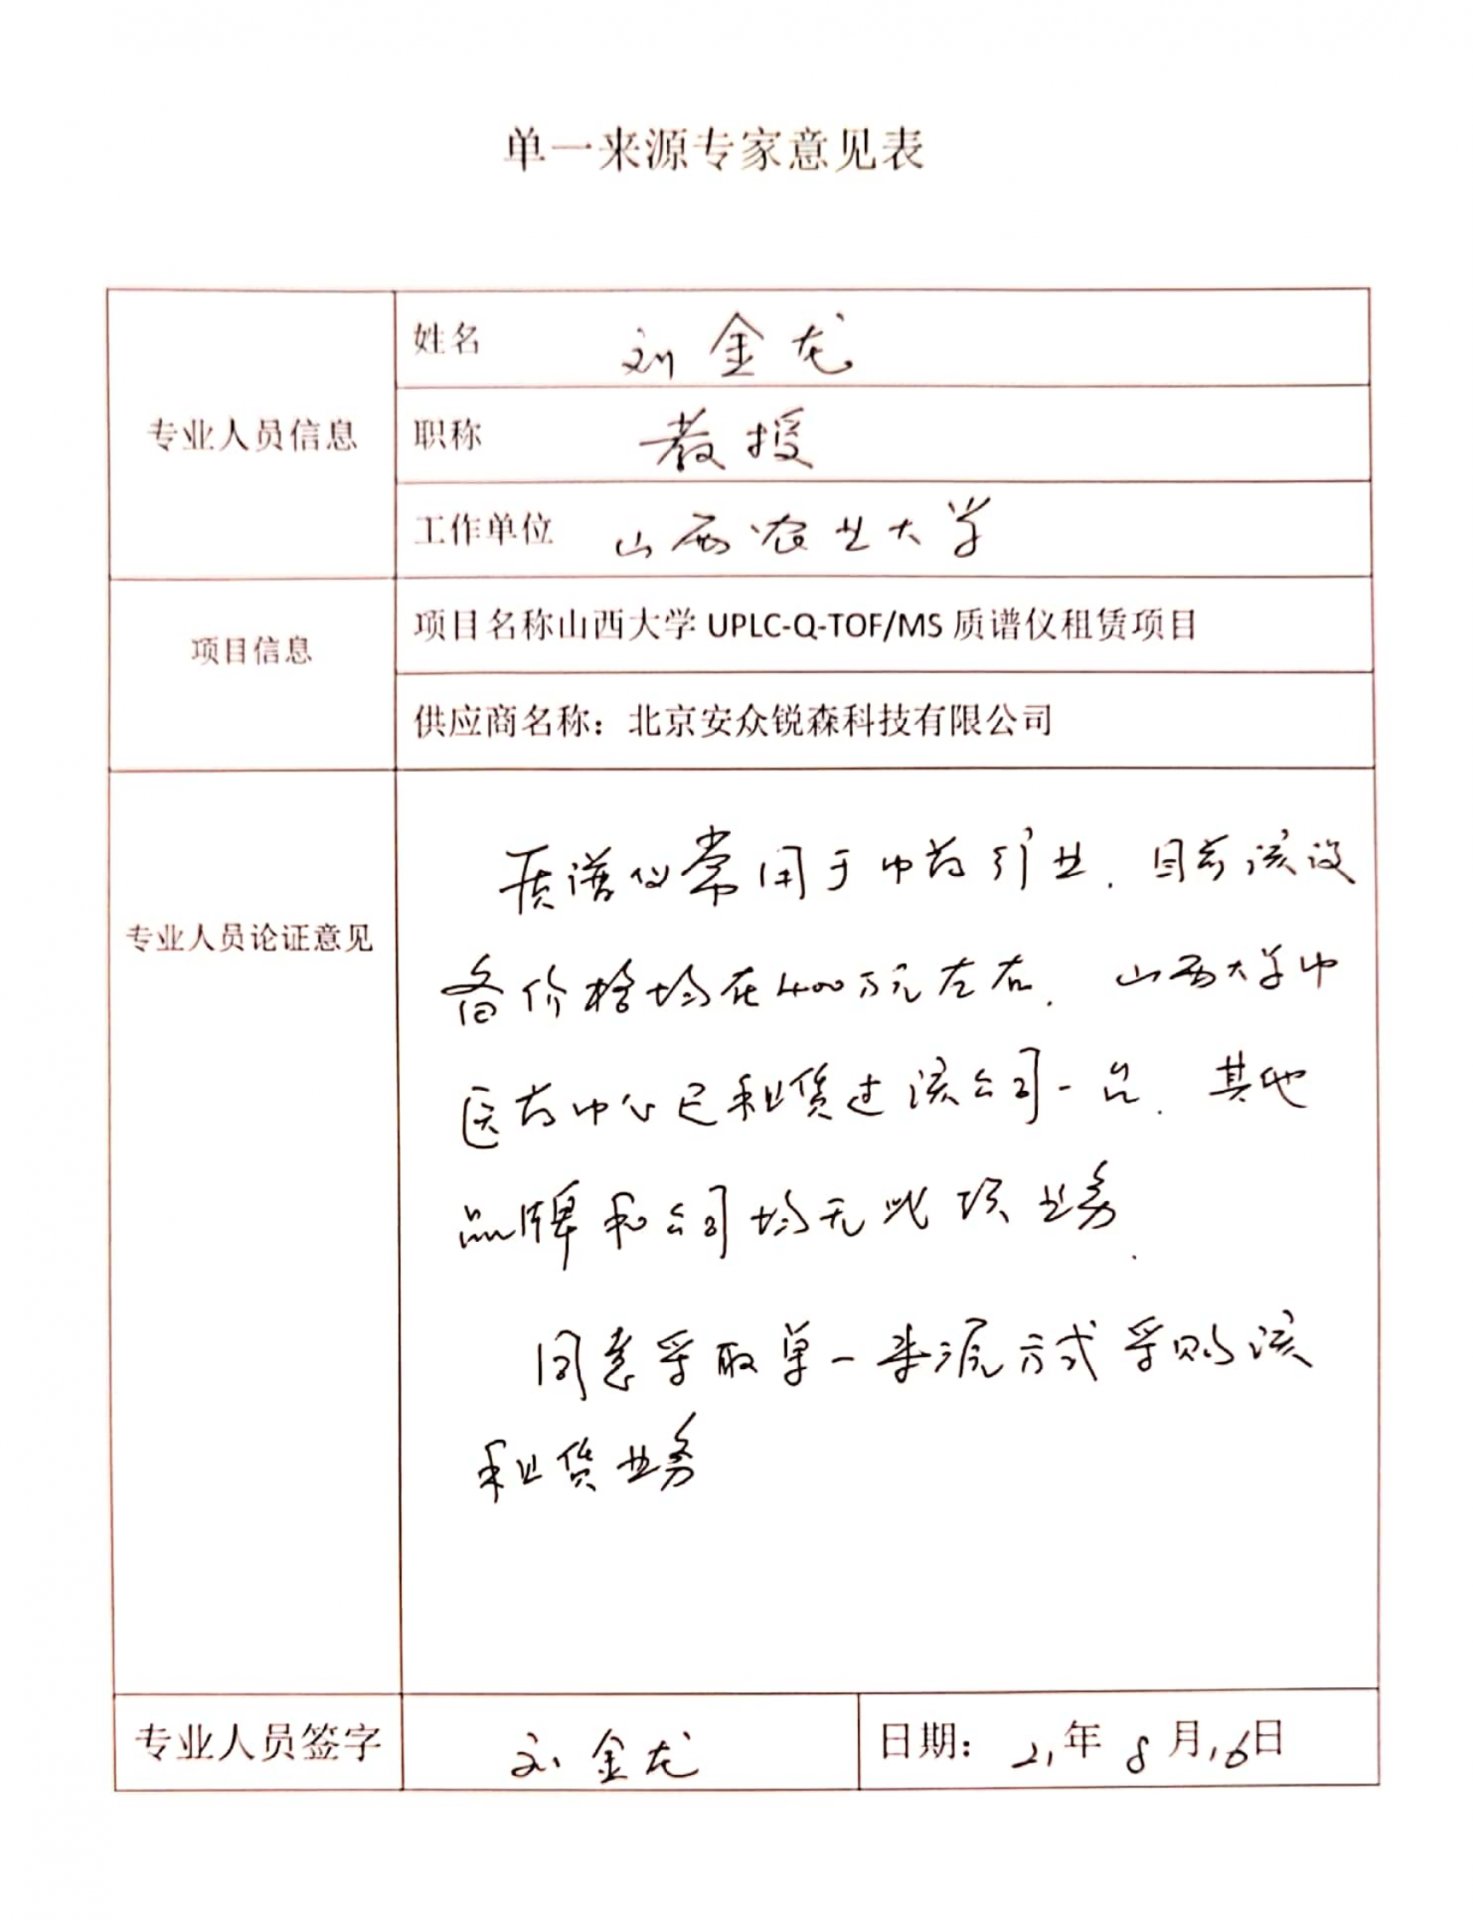 单一来源专家意见表
专业人员信息
姓名 刘金龙
职称 教授
工作单位 山西农业大学
项目信息
项目名称山西大学 UPLC-Q-TOF/MS 质谱仪租赁项目
供应商名称：北京安众锐森科技有限公司
专业人员论证意见
质谱仪常用于中药行业．目前该设
备价格均在400万元左右．山西大学中
医药中心已租赁过该公司一台．其他
品牌和公司均无此项业务．
同意采取单一来源方式采购该
租赁业务
专业人员签字 刘金龙 日期：21年8月16日